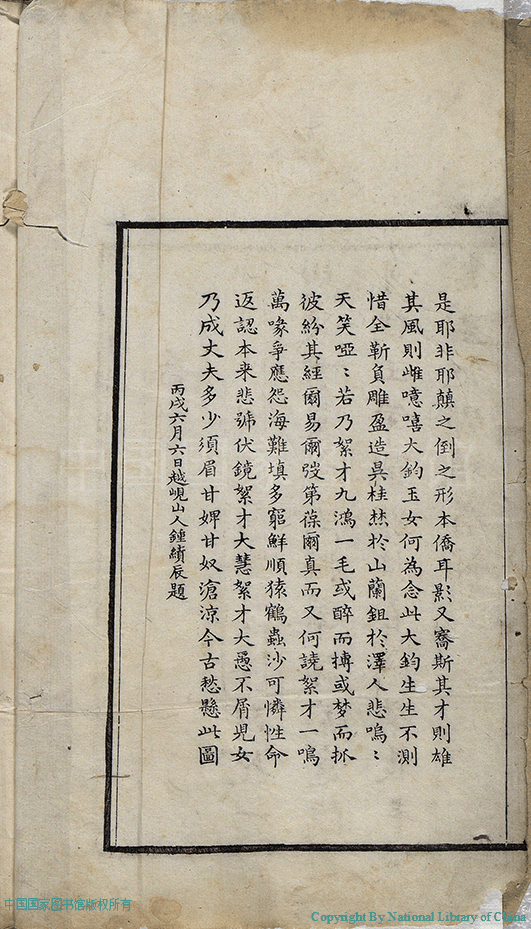 是耶非耶顛之倒之形本僑耳影又寄斯其才則雄
其風則雌噫嘻大鈞玉女何為念此大鈞生生不測
惜全靳負雕盈造吳桂焚於山蘭鉏於澤人悲嗚〻
天笑啞〻若乃絮才九鴻一毛或醉而搏或梦而抓
彼紛其經爾易爾弢第葆爾真而又何譊絮才一鳴
萬喙爭應怨海難填多窮鮮順猿鶴蟲沙可憐性命
返認本来悲號伏鏡絮才大慧絮才大愚不屑児女
乃成丈夫多少須眉甘婢甘奴滄涼今古愁懸此圖
丙戌六月六日越峴山人鍾績辰題
中国国家图书馆版权所有
Copyright By National Library of China